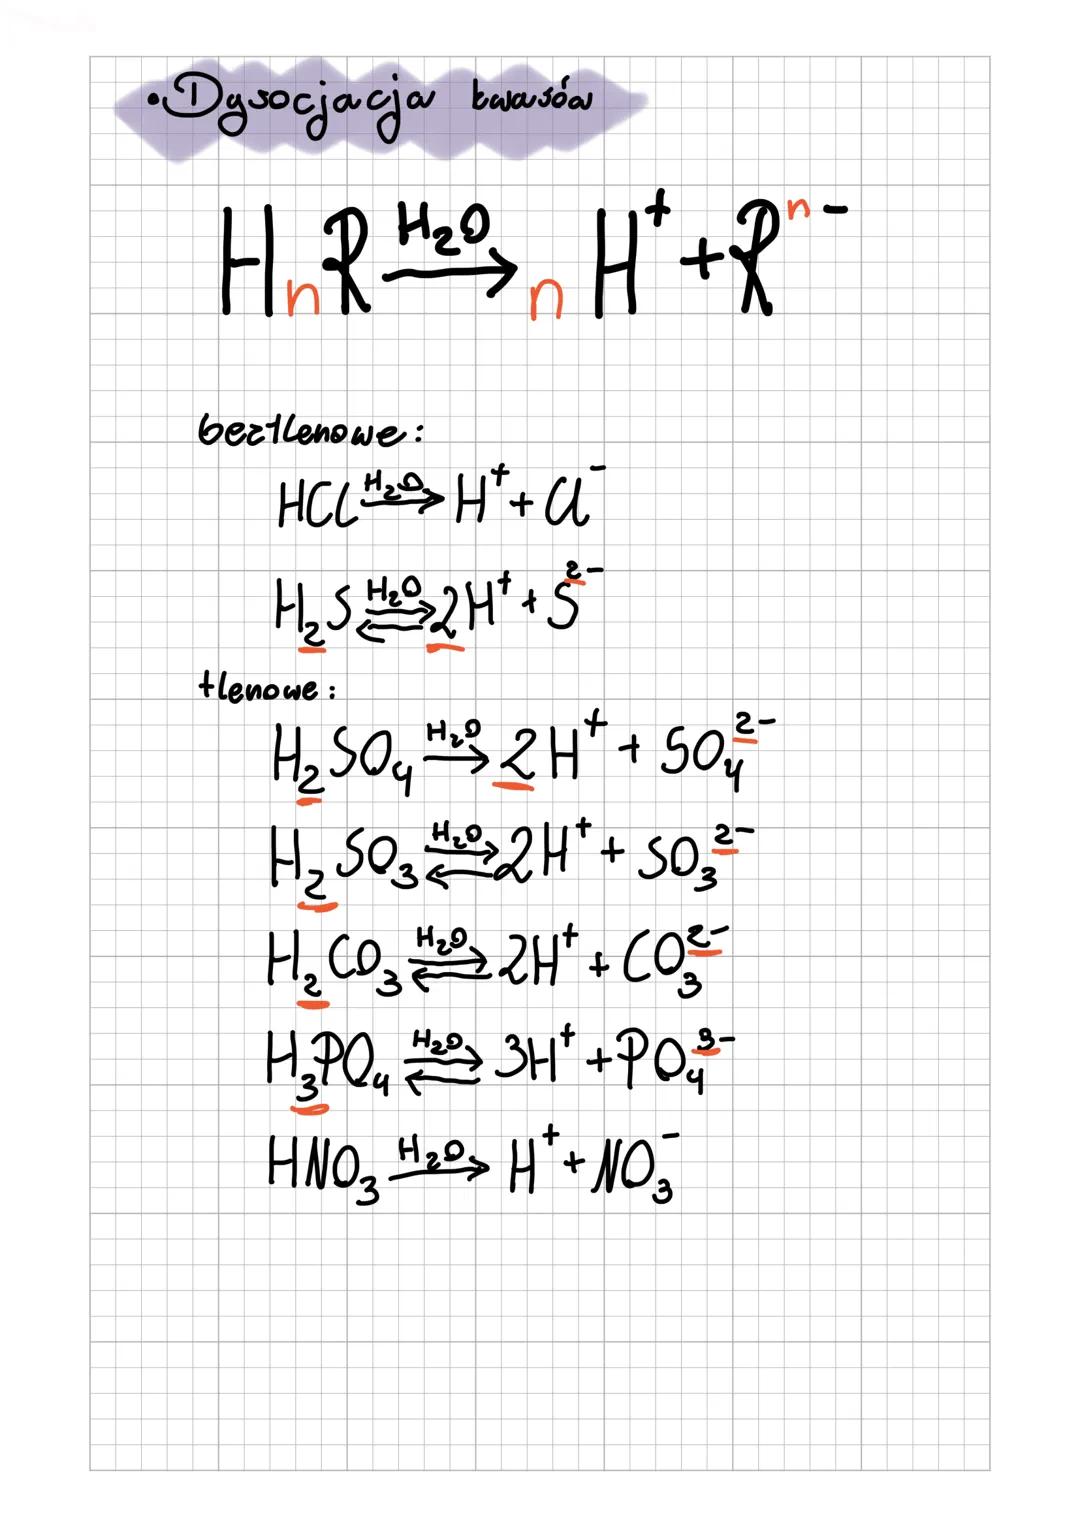 • Dysocjacja kwasów
HₙR —H₂O→ n H⁺ + Rⁿ⁻
beztlenowe:
HCl —H₂O→ H⁺ + Cl⁻
H₂S ⇌(H₂O) 2H⁺ + S²⁻
tlenowe:
H₂SO₄ —H₂O→ 2H⁺ + SO₄²⁻
H₂SO₃ ⇌(H₂O) 2H⁺ + SO₃²⁻
H₂CO₃ ⇌(H₂O) 2H⁺ + CO₃²⁻
H₃PO₄ ⇌(H₂O) 3H⁺ + PO₄³⁻
HNO₃ —H₂O→ H⁺ + NO₃⁻